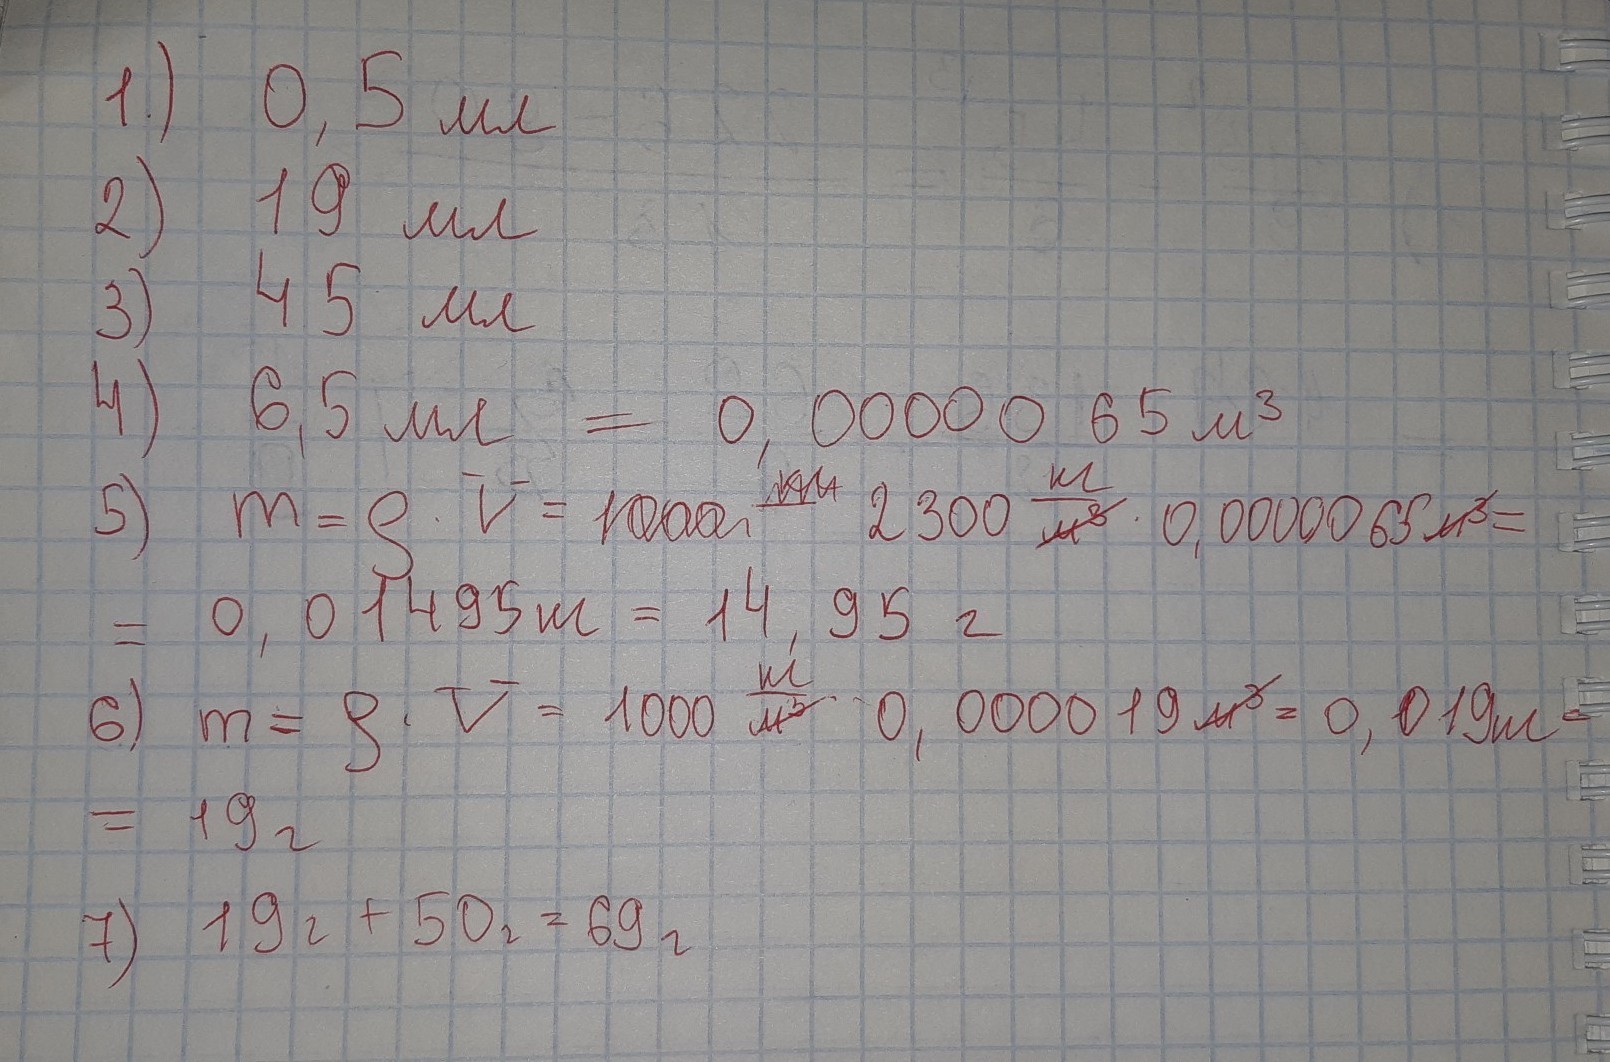 1.) 0,5 мл
2) 19 мл
3) 45 мл
4) 6,5 мл = 0,0000065 м³
5) m = ρ · V = 2300 кг/м³ · 0,0000065 м³ =
= 0,01495 кг = 14,95 г
6) m = ρ · V = 1000 кг/м³ · 0,000019 м³ = 0,019 кг =
= 19 г
7) 19 г + 50 г = 69 г